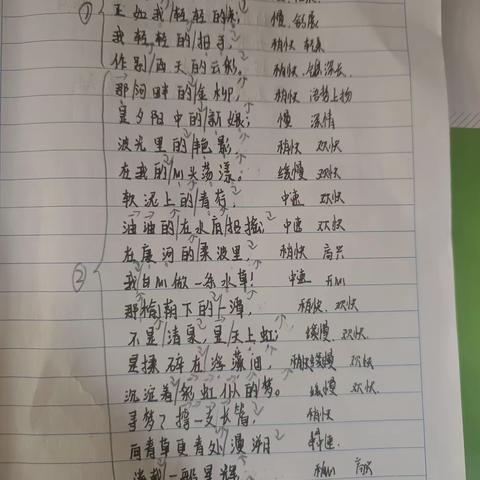 ① 正如我/轻轻的来; 慢 舒展
我轻轻的/招手, 稍快 轻柔
作别/西天的云彩。 稍快 深长
那河畔的/金柳, 稍快 语势上扬
是夕阳中的/新娘; 慢 深情
波光里的/艳影, 稍快 欢快
在我的/心头荡漾。 缓慢 欢快
软泥上的/青荇, 中速 欢快
油油的/在水底招摇; 中速 欢快
在康河的/柔波里, 稍快 高兴
② 我甘心做一条水草! 中速 开心
那榆荫下的/一潭, 稍快 欢快
不是/清泉,是/天上虹; 缓慢 欢快
是揉碎在/浮藻间, 缓慢 欢快
沉淀着/彩虹似的梦。 缓慢 欢快
寻梦?撑一支长篙, 稍快
向青草更青处/漫溯
满载一船星辉, 高兴